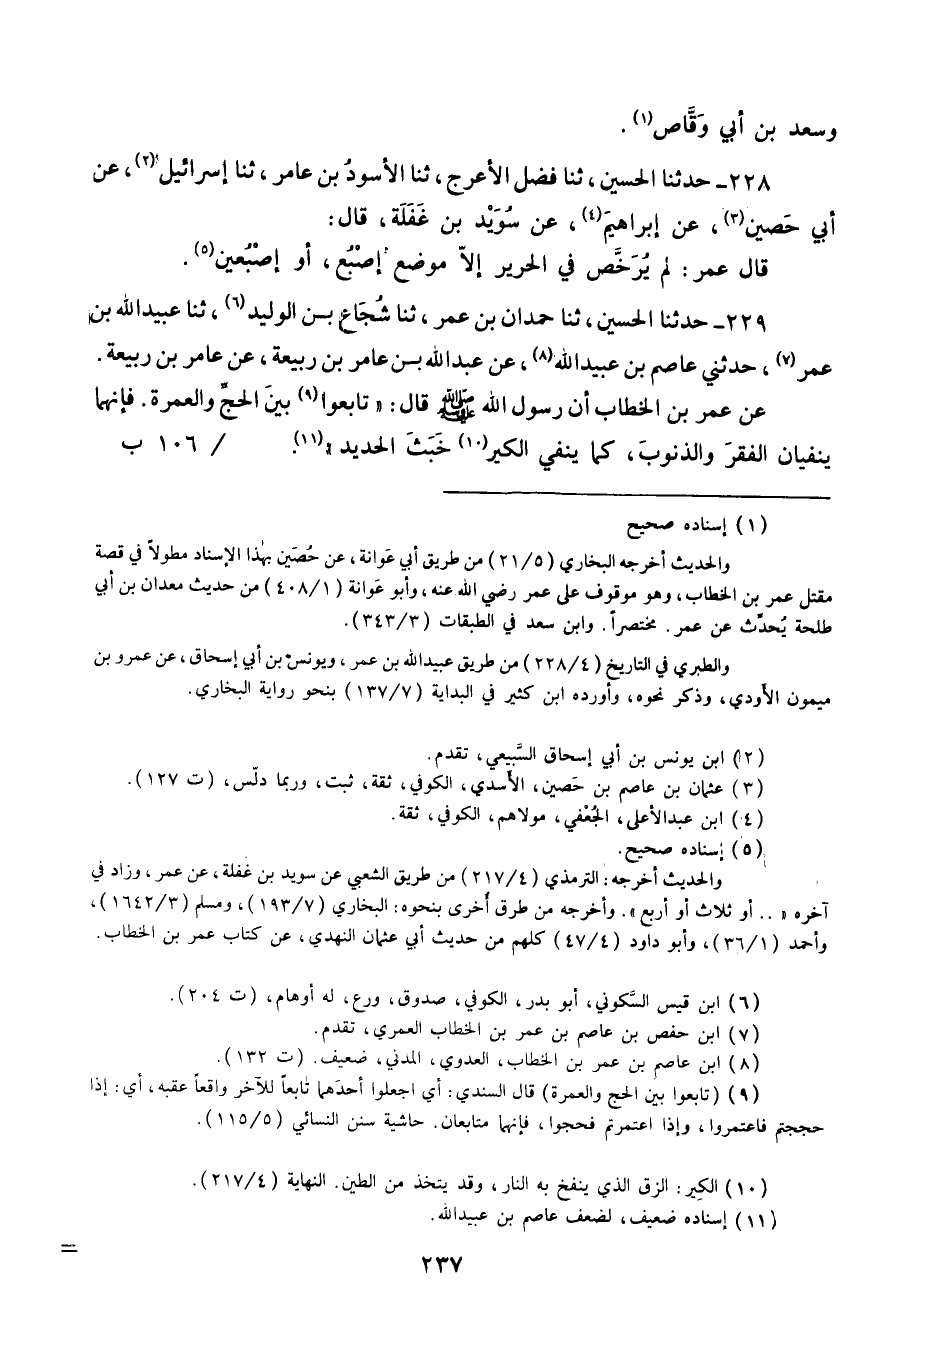 وسعد بن أبي وَقَّاص(١).
٢٢٨ـ حدثنا الحسين، ثنا فضل الأعرج، ثنا الأسودُ بن عامر، ثنا إسرائيل(٢)، عن
أبي حَصين(٣)، عن إبراهيمَ(٤)، عن سُوَيْد بن غَفَلَة، قال:
قال عمر: لم يُرَخَّص في الحرير إلاّ موضع إصْبُع، أو إصْبُعين(٥).
٢٢٩ـ حدثنا الحسين، ثنا حمدان بن عمر، ثنا شُجَاع بـن الوليد(٦)، ثنا عبيدالله بن
عمر(٧)، حدثني عاصم بن عبيدالله(٨)، عن عبدالله بـن عامر بن ربيعة، عن عامر بن ربيعة.
عن عمر بن الخطاب أن رسول الله ﷺ قال: « تابعوا(٩) بينَ الحجِّ والعمرة. فإنهما
ينفيان الفقرَ والذنوبَ، كما ينفي الكير(١٠) خَبَثَ الحديد »(١١). / ١٠٦ ب
(١) إسناده صحيح
والحديث أخرجه البخاري (٢١/٥) من طريق أبي عَوانة، عن حُصَين بهٰذا الإسناد مطولاً في قصة
مقتل عمر بن الخطاب، وهو موقوف على عمر رضي الله عنه، وأبو عَوانة (٤٠٨/١) من حديث معدان بن أبي
طلحة يُحدِّث عن عمر. مختصراً. وابن سعد في الطبقات (٣٤٣/٣).
والطبري في التاريخ (٢٢٨/٤) من طريق عبيدالله بن عمر، ويونس بن أبي إسحاق، عن عمرو بن
ميمون الأَودي، وذكر نحوه، وأورده ابن كثير في البداية (١٣٧/٧) بنحو رواية البخاري.
(٢) ابن يونس بن أبي إسحاق السَّبيعي، تقدم.
(٣) عثمان بن عاصم بن حَصين، الأَسدي، الكوفي، ثقة، ثبت، وربما دلّس، (ت ١٢٧).
(٤) ابن عبدالأعلى، الجُعْفي، مولاهم، الكوفي، ثقة.
(٥) إسناده صحيح.
والحديث أخرجه: الترمذي (٢١٧/٤) من طريق الشعبي عن سويد بن غفلة، عن عمر، وزاد في
آخره « .. أو ثلاث أو أربع ». وأخرجه من طرق أُخرى بنحوه: البخاري (١٩٣/٧)، ومسلم (١٦٤٢/٣)،
وأحمد (٣٦/١)، وأبو داود (٤٧/٤) كلهم من حديث أبي عثمان النهدي، عن كتاب عمر بن الخطاب.
(٦) ابن قيس السَّكوني، أبو بدر، الكوفي، صدوق، ورع، له أوهام، (ت ٢٠٤).
(٧) ابن حفص بن عاصم بن عمر بن الخطاب العمري، تقدم.
(٨) ابن عاصم بن عمر بن الخطاب، العدوي، المدني، ضعيف. (ت ١٣٢).
(٩) (تابعوا بين الحج والعمرة) قال السندي: أي اجعلوا أحدَهما تابعاً للآخر واقعاً عقبه، أي: إذا
حججتم فاعتمروا، وإذا اعتمرتم فحجوا، فإنهما متابعان. حاشية سنن النسائي (١١٥/٥).
(١٠) الكِير: الزق الذي ينفخ به النار، وقد يتخذ من الطين. النهاية (٢١٧/٤).
(١١) إسناده ضعيف، لضعف عاصم بن عبيدالله.
٢٣٧